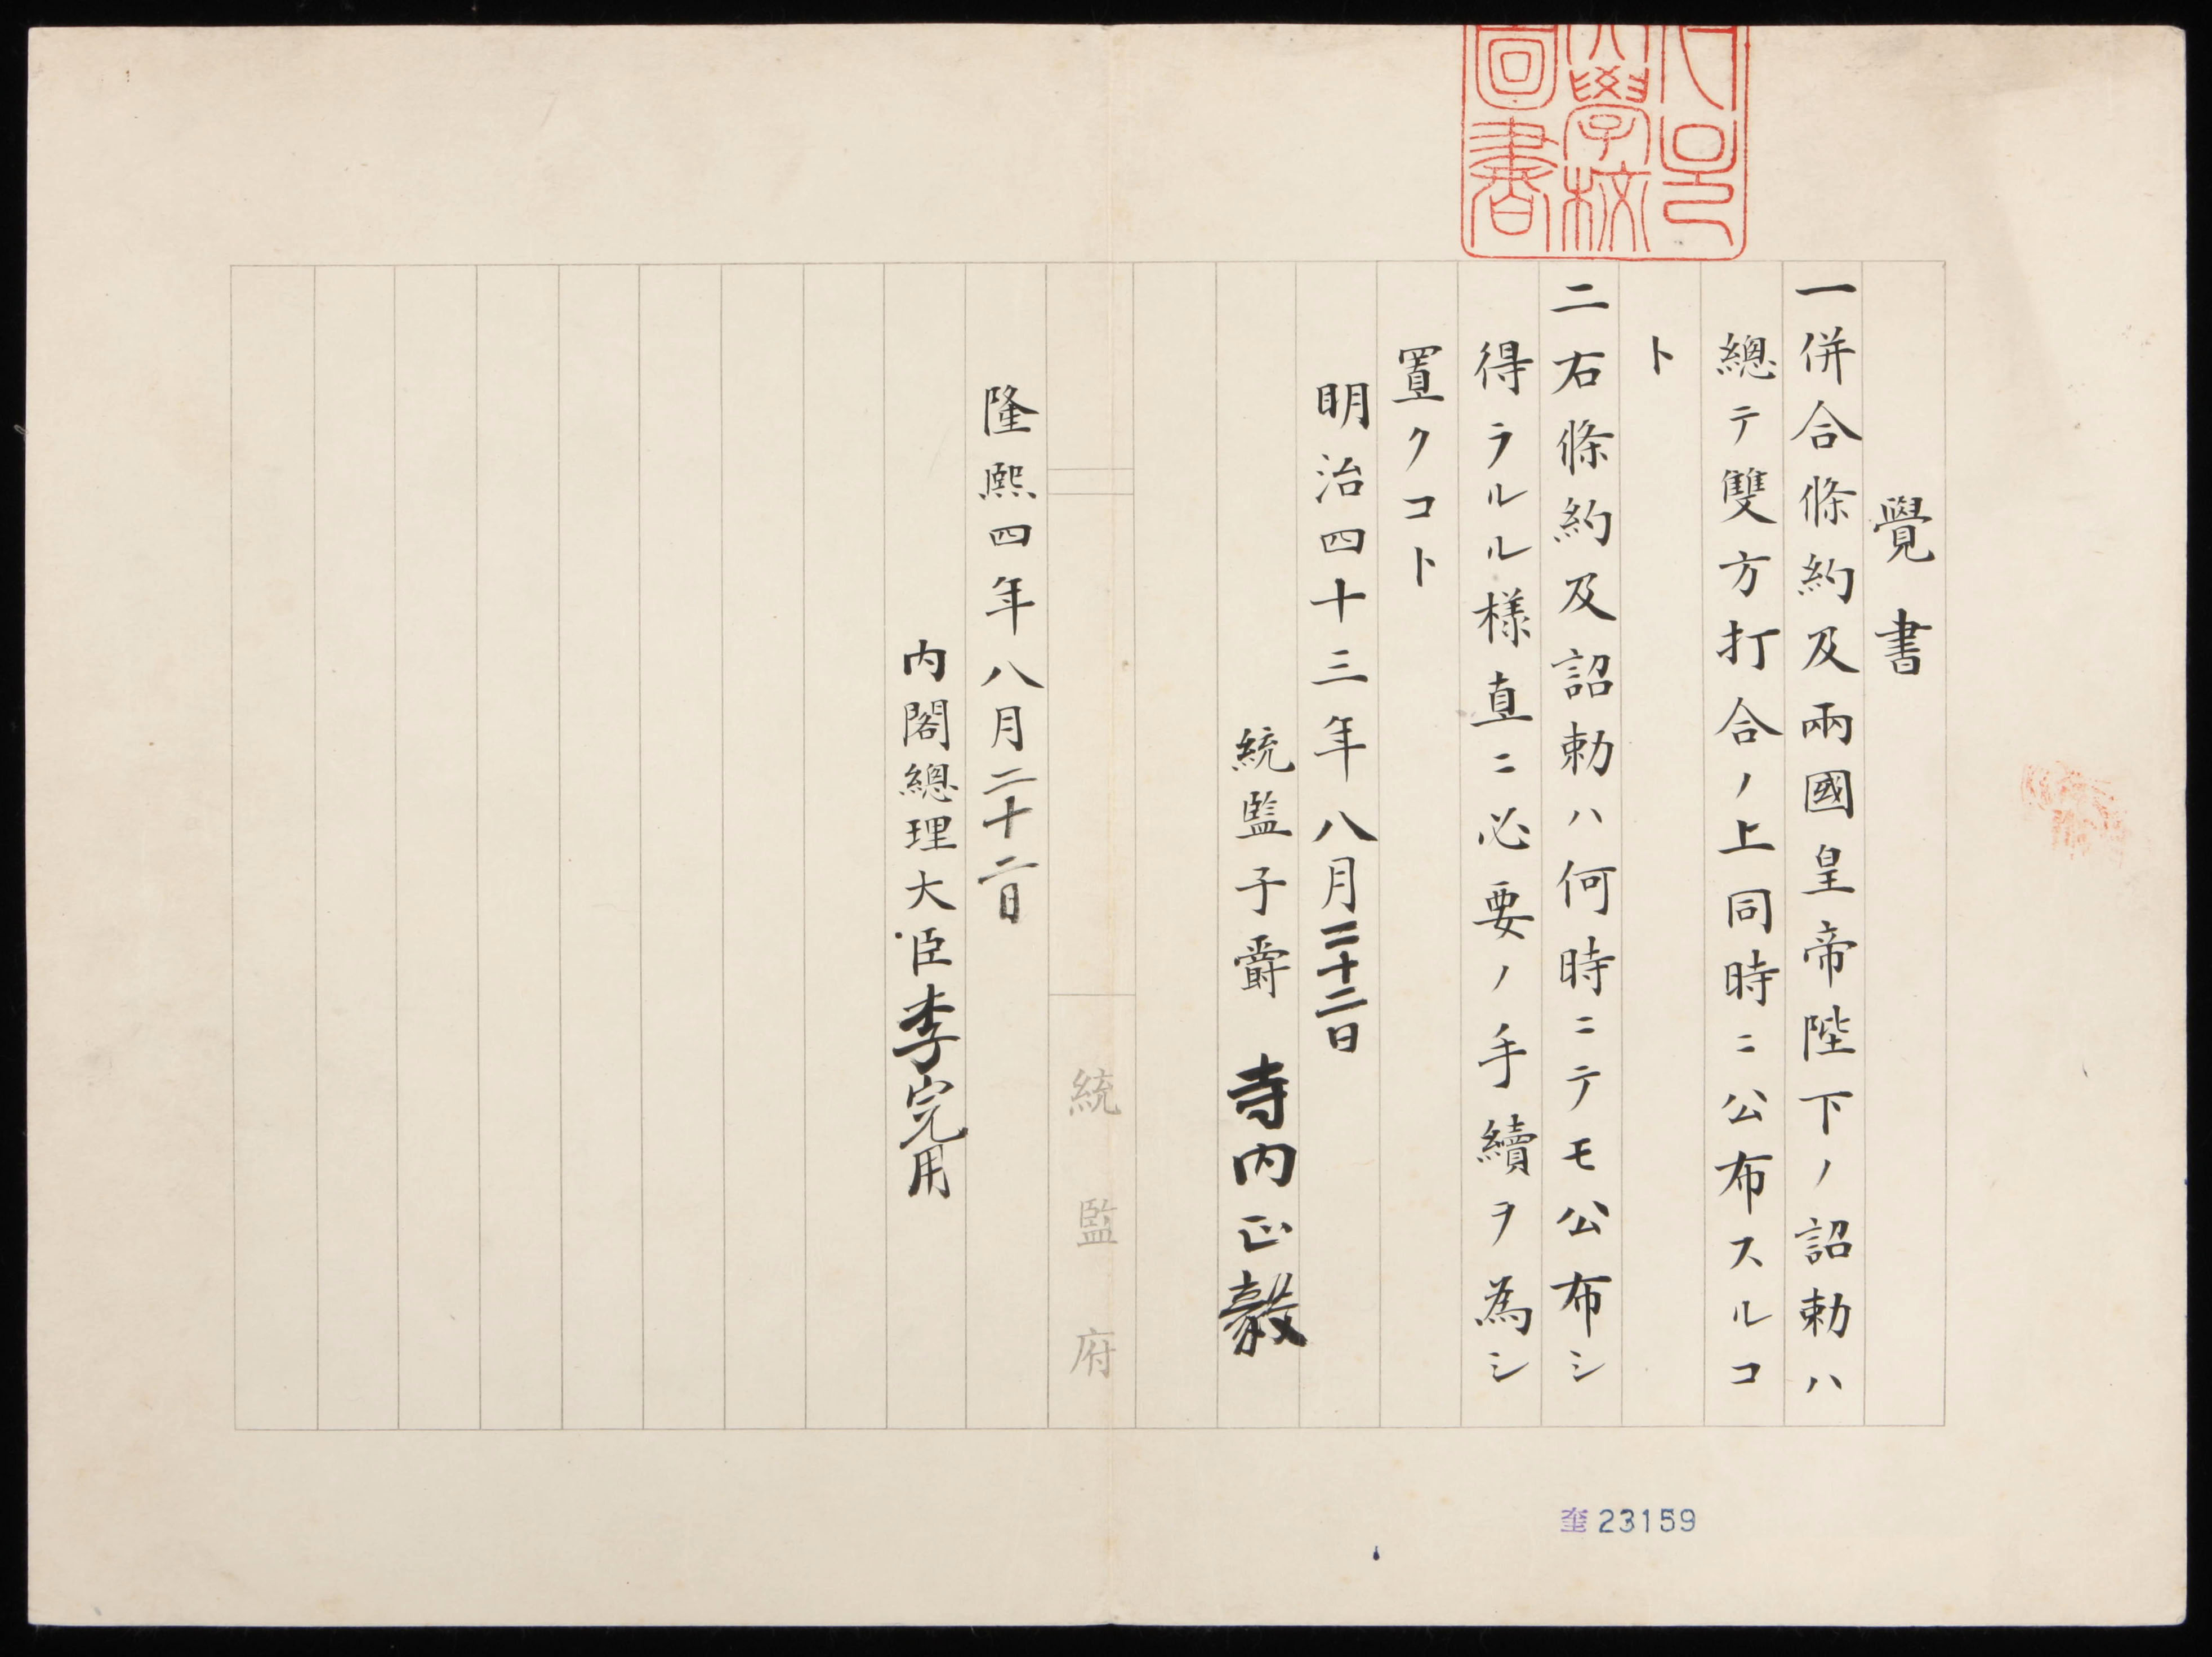 覺書
一併合條約及兩國皇帝陛下ノ詔勅ハ
總テ雙方打合ノ上同時ニ公布スルコ
ト
二右條約及詔勅ハ何時ニテモ公布シ
得ラルル様直ニ必要ノ手續ヲ為シ
置クコト
明治四十三年八月二十二日
統監子爵 寺内正毅
統監府
隆熙四年八月二十二日
内閣總理大臣李完用
學校
圖書
奎23159